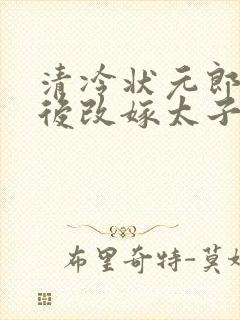 清冷状元郎
後改嫁太子
布里奇特-莫